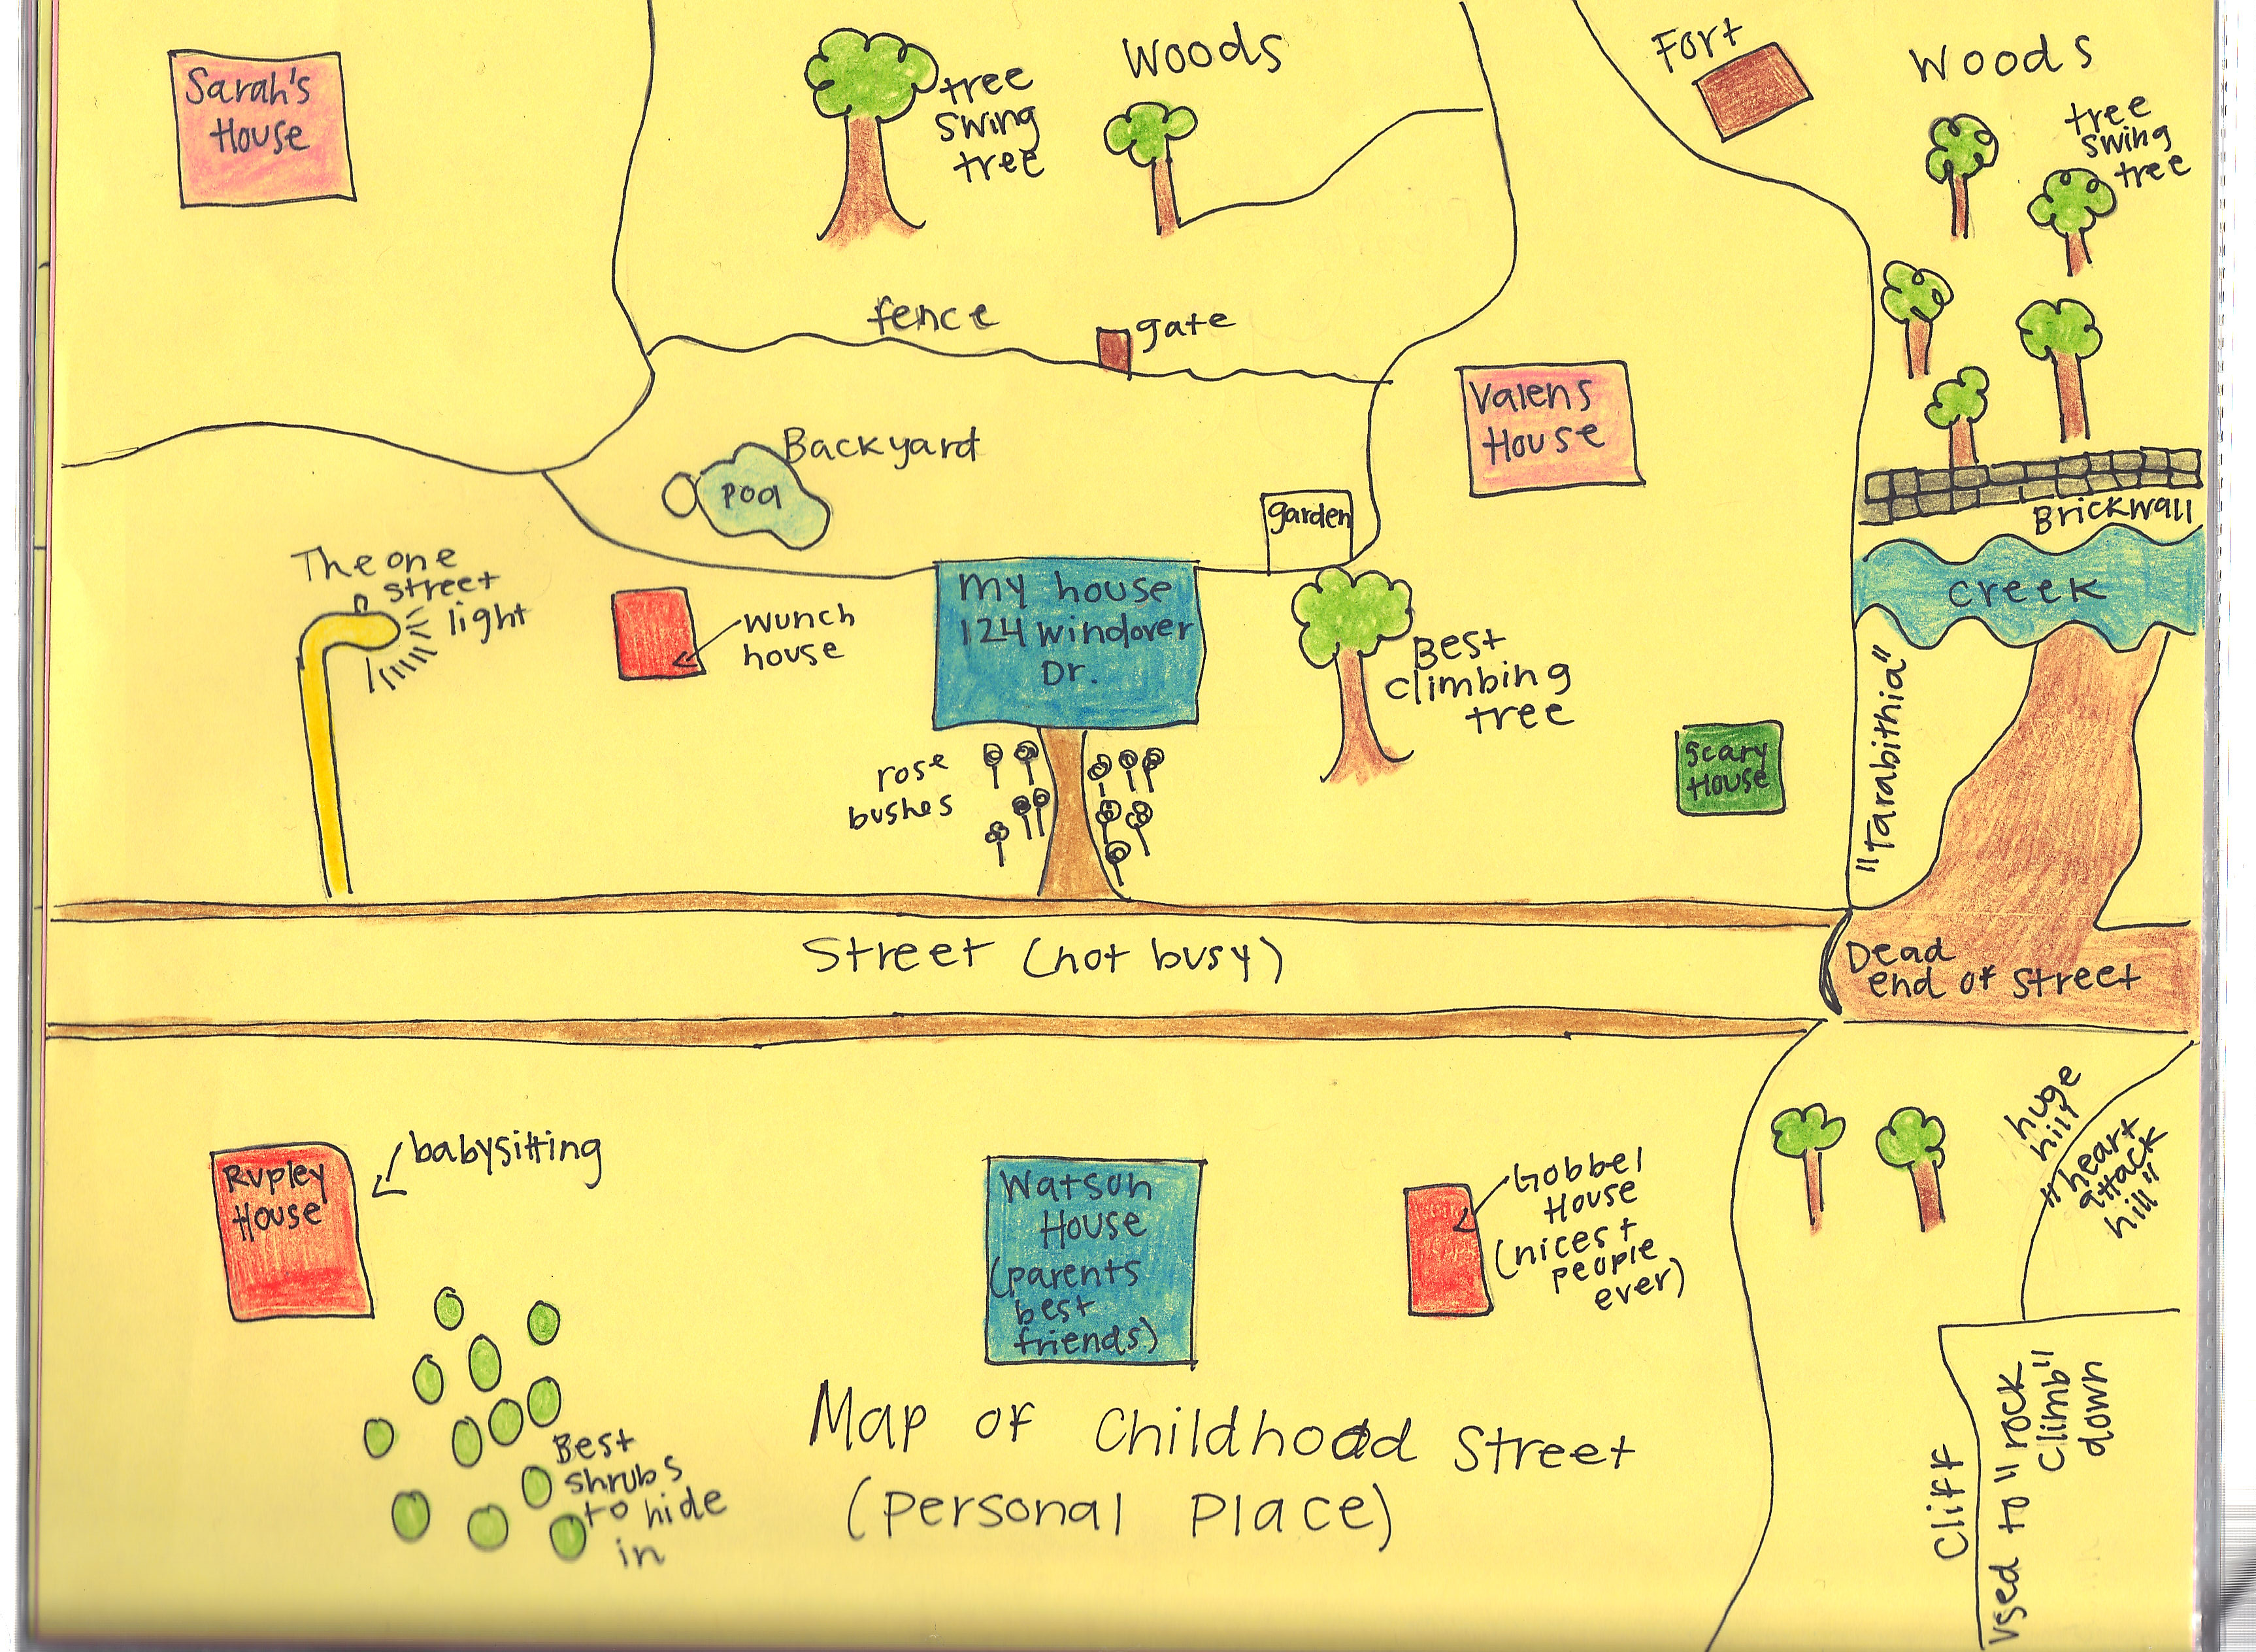 Sarah's
House
tree
swing
tree
Woods
Fort
Woods
tree
swing
tree
fence
gate
Valens
House
Backyard
pool
garden
Brickwall
creek
The one
street
light
wunch
house
my house
124 Windover
Dr.
Best
climbing
tree
rose
bushes
Scary
House
"Tarabithia"
Street (not busy)
Dead
end of street
Rupley
House
babysitting
Watson
House
(parents
best
friends)
Gobbel
House
(nicest
people
ever)
huge
hill
"heart
attack
hill"
Best
shrubs
to hide
in
Map of Childhood Street
(Personal Place)
Cliff
used to "rock
climb"
down